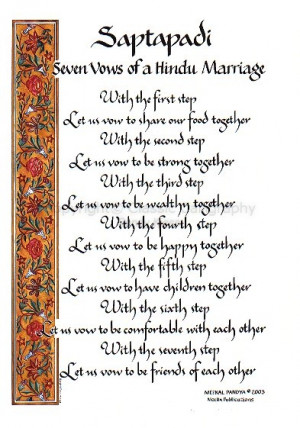 Saptapadi
Seven Vows of a Hindu Marriage
With the first step
Let us vow to share our food together
With the second step
Let us vow to be strong together
With the third step
Let us vow to be wealthy together
With the fourth step
Let us vow to be happy together
With the fifth step
Let us vow to have children together
With the sixth step
Let us vow to be comfortable with each other
With the seventh step
Let us vow to be friends of each other
MEINAL PANDYA © 2003